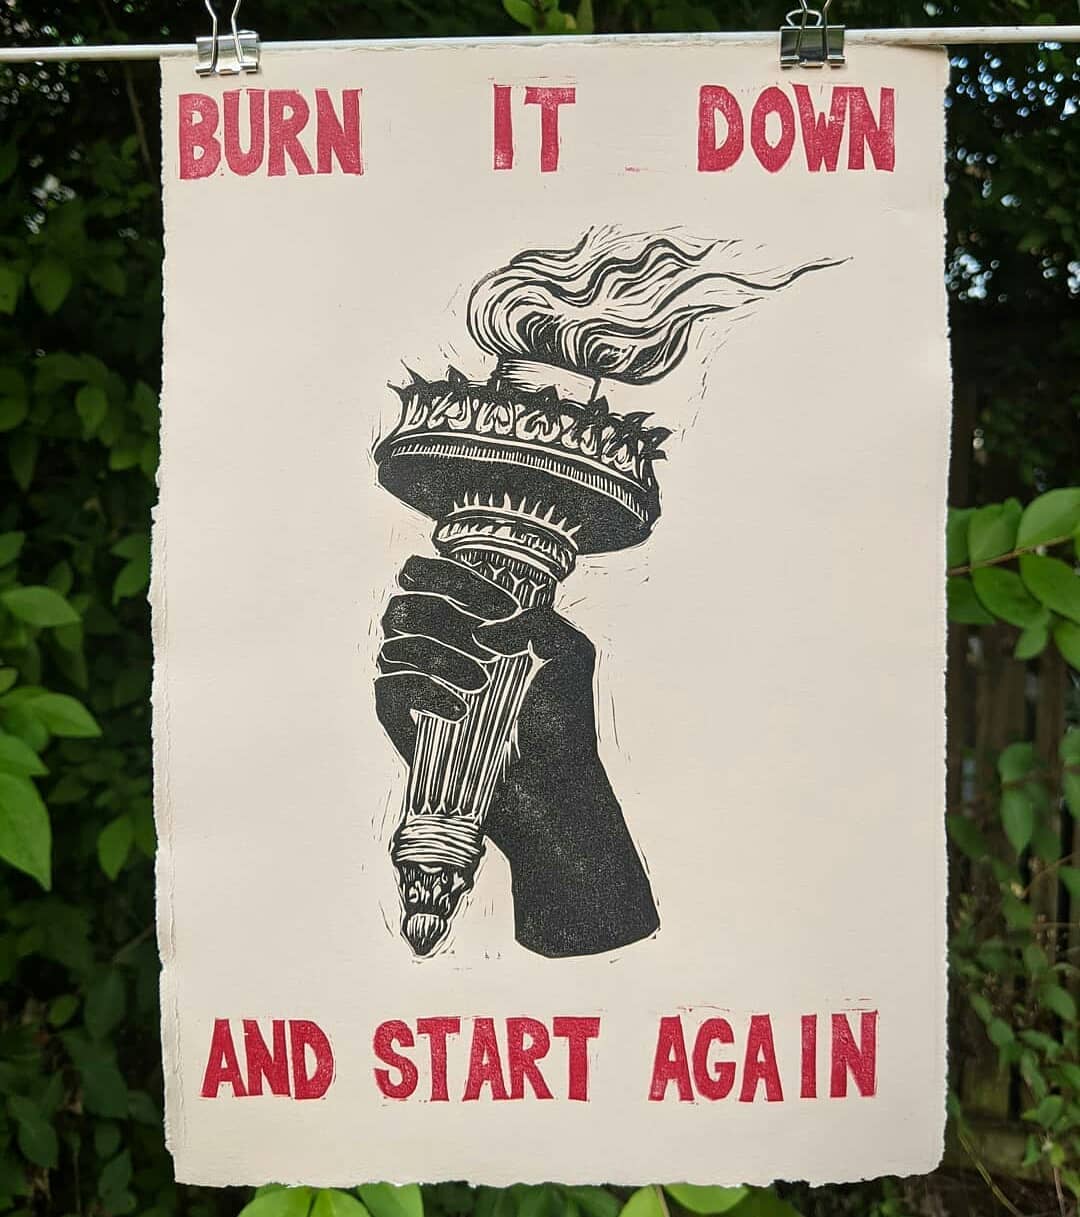 BURN IT DOWN
AND START AGAIN